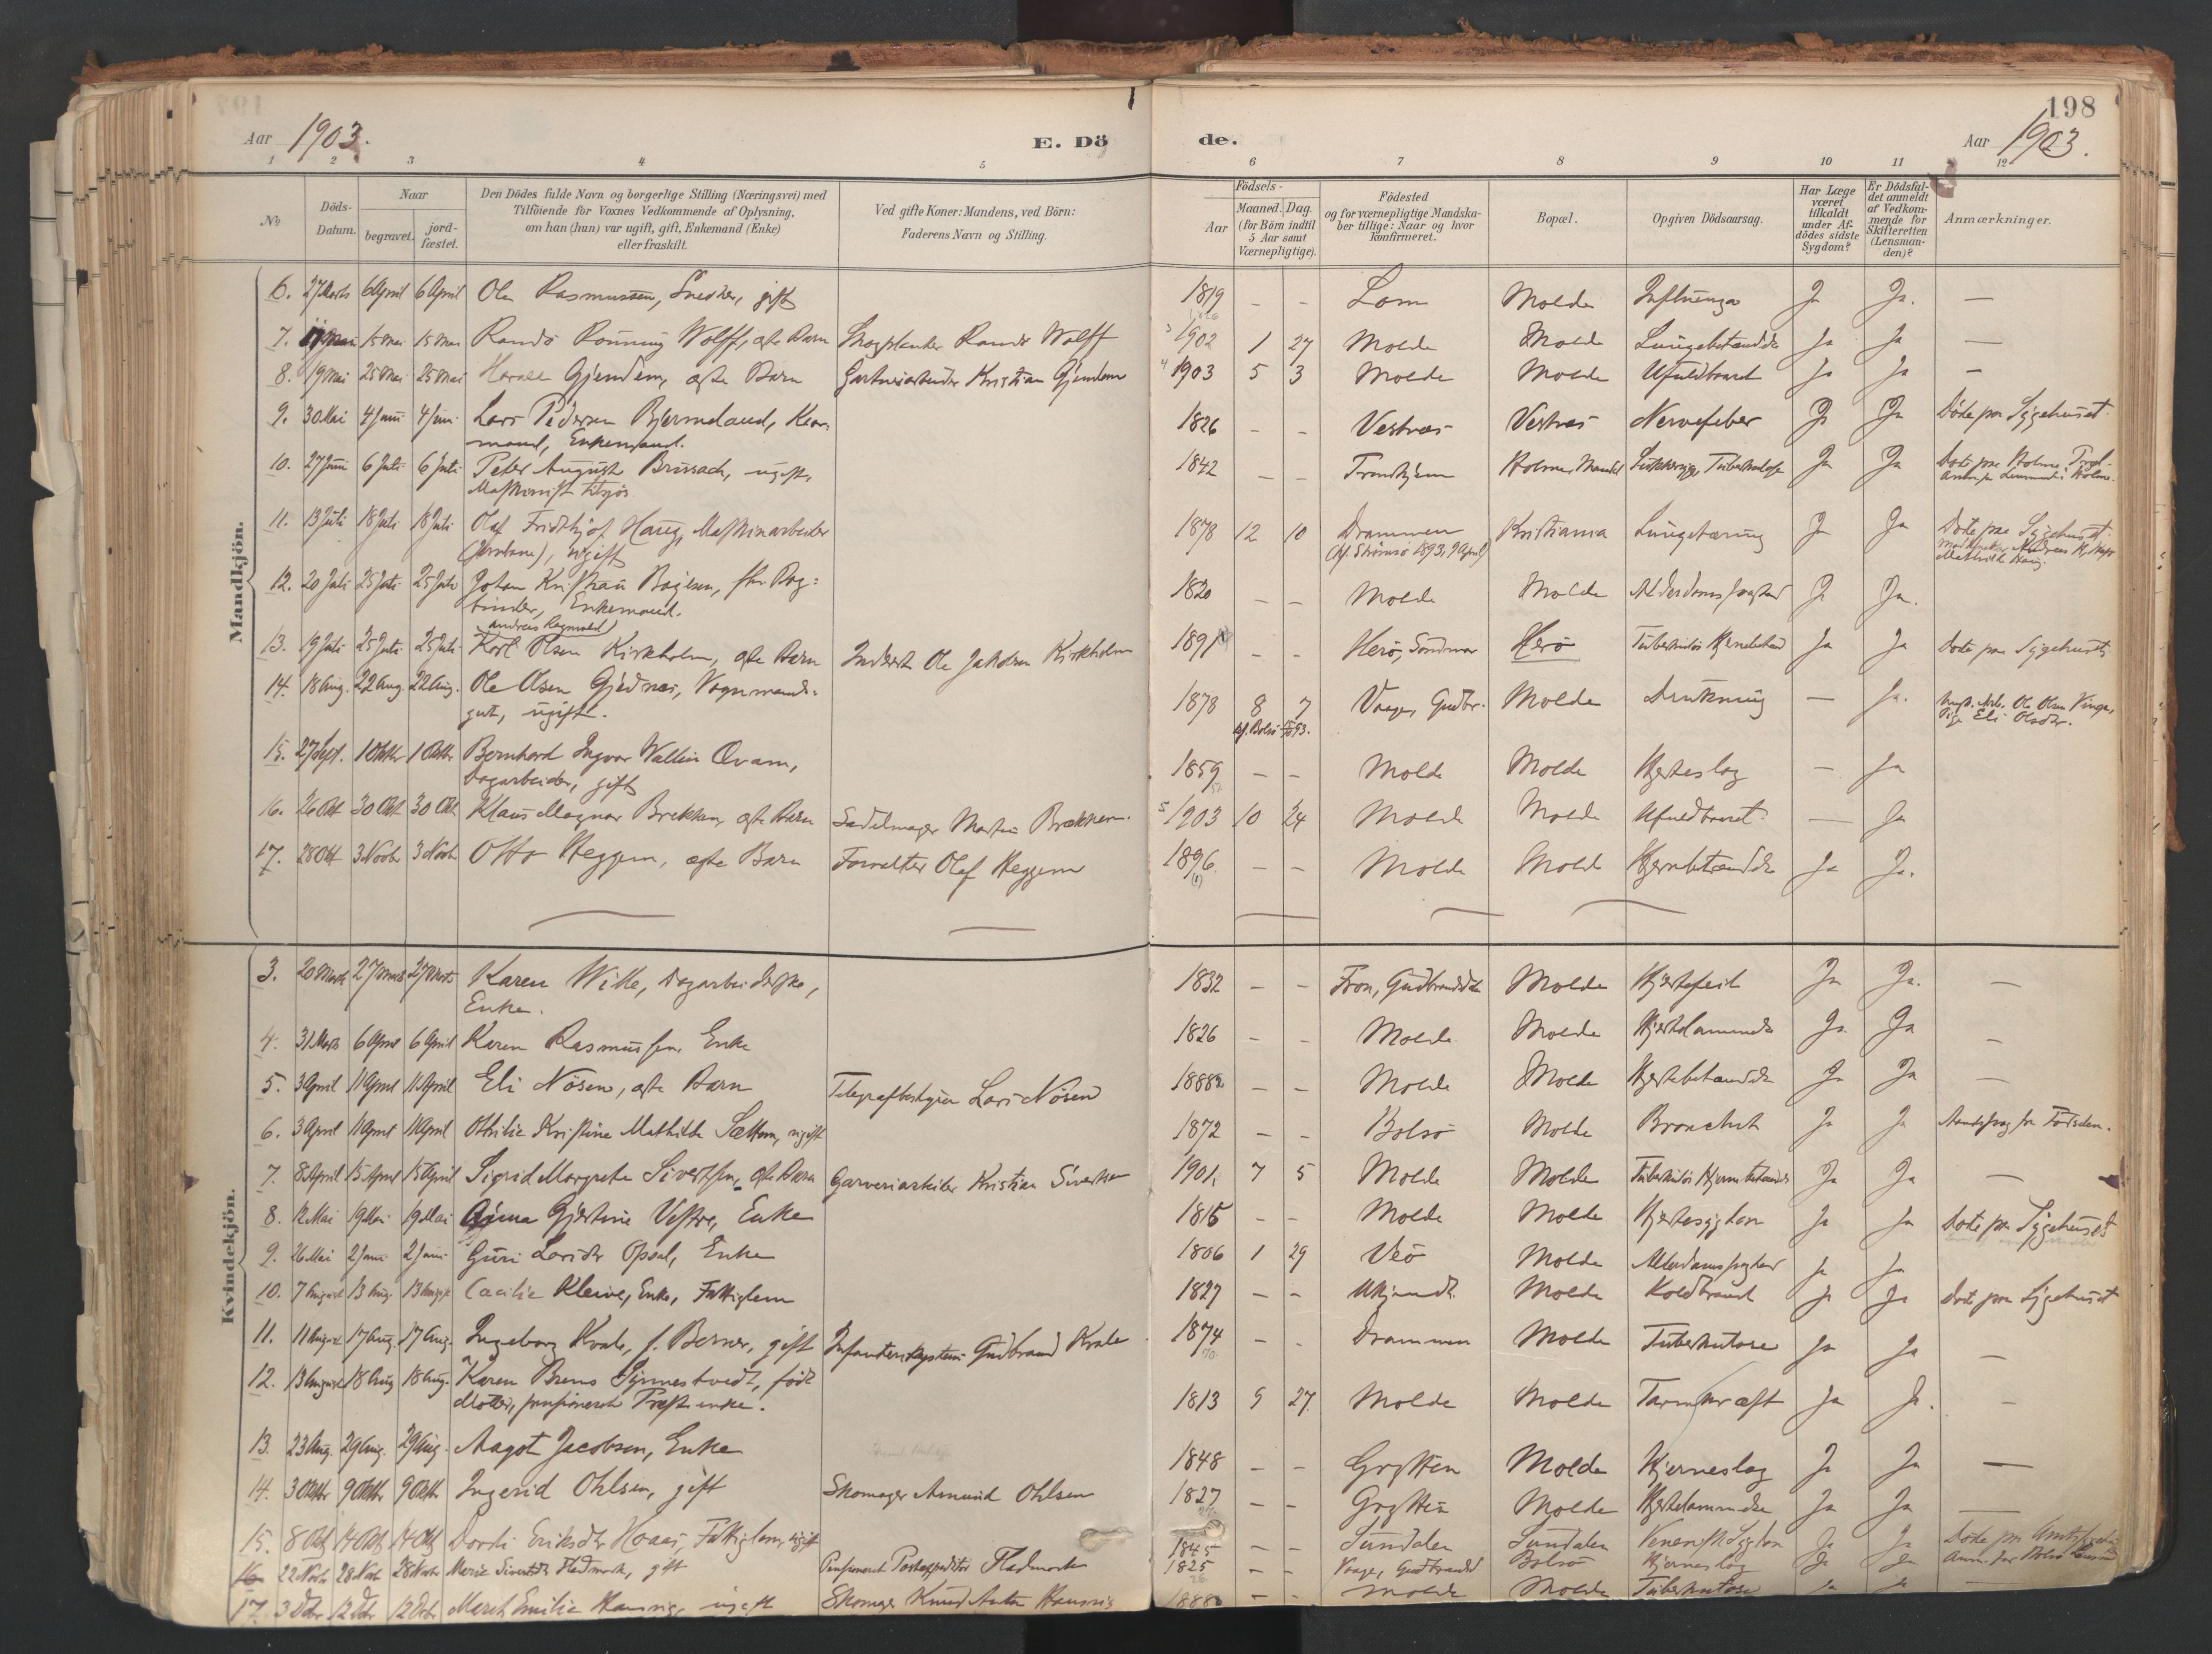 198
Aar 1903. E. Dö de. Aar 1903.
1 2 3 4 5 6 7 8 9 10 11 12
No. Döds-Datum. Naar begravet. jordfæstet.
Den Dödes fulde Navn og borgerlige Stilling (Næringsvei) med
Tilföiende for Voxnes Vedkommende af Oplysning,
om han (hun) var ugift, gift, Enkemand (Enke)
eller fraskilt.
Ved gifte Koner: Mandens, ved Börn:
Faderens Navn og Stilling.
Födsels-
Aar Maaned. Dag.
(for Börn indtil
5 Aar samt
Værnepligtige).
Födested
og for værnepligtige Mandska-
ber tillige: Naar og hvor
konfirmeret.
Bopæl.
Opgiven Dödsaarsag.
Har Læge
været
tilkaldt
under Af-
dödes sidste
Sygdom?
Er Dödsfal-
det anmeldt
af Vedkom-
mende for
Skifteretten
(Lensman-
den)?
Anmærkninger.
Mandkjön.
6. 27 Marts 6 April 6 April Ole Rasmussen, Snedker, gift 1819 - - Lom Molde Influenza Ja Ja. —
7. 11 Mai 15 Mai 15 Mai Rönning Wolff, ægte Barn Wolff 1902 1 27 Molde Molde Lungebetændelse Ja Ja —
8. 19 Mai 25 Mai 25 Mai Gjendem, ægte Barn Gartneriarbeider Kristian Gjendem 1903 5 3 Molde Molde Ufuldbaaret Ja Ja —
9. 30 Mai 4 Juni 4 Juni Lars Pedersen Bjermeland, Kaar-
mand, Enkemand. 1826 - - Vestnes Vestnes Nervefeber Ja Ja Döde paa Sygehuset
10. 27 Juni 6 Juli 6 Juli Peter August Brissach, ugift,
Maskinist tilsjös 1842 - - Trondhjem Sukkersyge, Tuberkulose Ja Ja
11. 13 Juli 18 Juli 18 Juli Olaf Fridthjof Haug, Maskinarbeider
(Jernbane), ugift 1878 12 10 Drammen Kristiania Lungetæring Ja Ja Döde paa Sygehuset
(kf. Strömsö 1893, 9 April)
12. 20 Juli 25 Juli 25 Juli Johan Kristian Bögesen, fhv. Bog-
binder, Enkemand. 1820 - - Molde Molde Alderdomssvaghed Ja Ja.
Andreas Ragnvald
13. 19 Juli 25 Juli 25 Juli Karl Olsen Kirkholm, ægte Barn Inderst Ole Jakobsen Kirkholm 1891 - - Herö, Söndmör Herö Tuberkulös Hjernebetænd Ja Ja Döde paa Sygehuset
14. 18 Aug. 22 Aug. 22 Aug. Ole Olsen Gjednes, Vognmands-
gut, ugift. 1878 8 7 Vaage, Gudbr. Molde Drukning — Ja. Ole Olsen Vinge,
Pige Eli Olsdtr.
kf. Bolsö
15. 27 Sept. 1 Oktbr 1 Oktbr Bernhard Ingvar Wallin Qvam,
Dagarbeider, gift 1859 - - Molde Molde Hjerteslag — Ja
16. 26 Okt 30 Okt 30 Okt Klaus Magnar Brekken, ægte Barn Sadelmager Martin Brekken. 1903 10 24 Molde Molde Ufuldbaaret — Ja
17. 28 Okt 3 Novbr 3 Novbr Otto Heggem, ægte Barn Forvalter Olaf Heggem 1896 - - Molde Molde Hjernebetændelse Ja Ja.
Kvindekjön.
3. 20 Marts 27 Marts 27 Marts Karen Wike, Dagarbeiderske,
Enke. 1832 - - Fron, Gudbrandsdalen Molde Hjertefeil Ja Ja. —
4. 31 Marts 6 April 6 April Karen Rasmussen, Enke 1826 - - Molde Molde Hjertelammelse Ja Ja —
5. 3 April 11 April 11 April Eli Nösen, ægte Barn Telegrafbestyrer Lars Nösen 1888 - - Molde Molde Hjertebetændelse Ja Ja —
6. 3 April 11 April 11 April Othilie Kristine Mathilde Sættem, ugift 1872 - - Bolsö Molde Bronchit Ja Ja Aandssvag fra Födselen.
7. 8 April 15 April 15 April Sigrid Margrete Sivertsen, ægte Barn Garveriarbeider Kristian Sivertsen 1901 7 5 Molde Molde Tuberkulös Hjernebetændelse Ja Ja —
8. 12 Mai 19 Mai 19 Mai Gjertine Vestre, Enke 1815 - - Molde Molde Hjertesygdom Ja Ja Döde paa Sygehuset
9. 26 Mai 2 Juni 2 Juni Guri Larsdtr Opsal, Enke 1806 1 29 Veö Molde Alderdomssvaghed Ja Ja
10. 7 August 13 Aug. 13 August Cæcilie Kleive, Enke, Fattiglem 1827 - - Ukjendt. Molde Koldbrand Ja Ja Döde paa Sygehuset
11. 11 August 17 Aug. 17 Aug. Ingeborg Kvale, f. Berner, gift Infanterikaptein Gudbrand Kvale 1874 - Drammen Molde Tuberkulose Ja Ja —
12. 13 August 18 Aug 18 Aug. Karen Brens Synnestvedt, född
Möller, pensioneret Præsteenke. 1813 9 27 Molde Molde Tarmkræft Ja Ja. -
13. 23 Aug. 29 Aug. 29 Aug. Aagot Jacobsen, Enke 1848 - - Grytten Molde Hjerneslag Ja Ja —
14. 3 Oktbr 9 Oktbr 9 Oktbr Ingerid Ohlsen, gift Skomager Amund Ohlsen 1827 - - Grytten Molde Hjertelammelse Ja Ja —
15. 8 Okt 14 Okt 14 Okt Dordi Eriksdtr Hoaas, Fattiglem, ugift 1845 - - Sundalen Sundalen Venerisk Sygdom Ja Ja Döde paa Amtssygehuset
16 22 Novbr 28 Novbr 28 Novbr Marie Sivertsdtr Fladmark, gift Pensioneret Postexpeditör Fladmark 1825 - - Vaage, Gudbrandsd Bolsö Hjerneslag Ja Ja
17. 3 Dcbr 12 Dcbr 12 Dcbr Marit Emilie ugift Skomager Knud Anton 1888 - - Molde Molde Tuberkulose Ja Ja